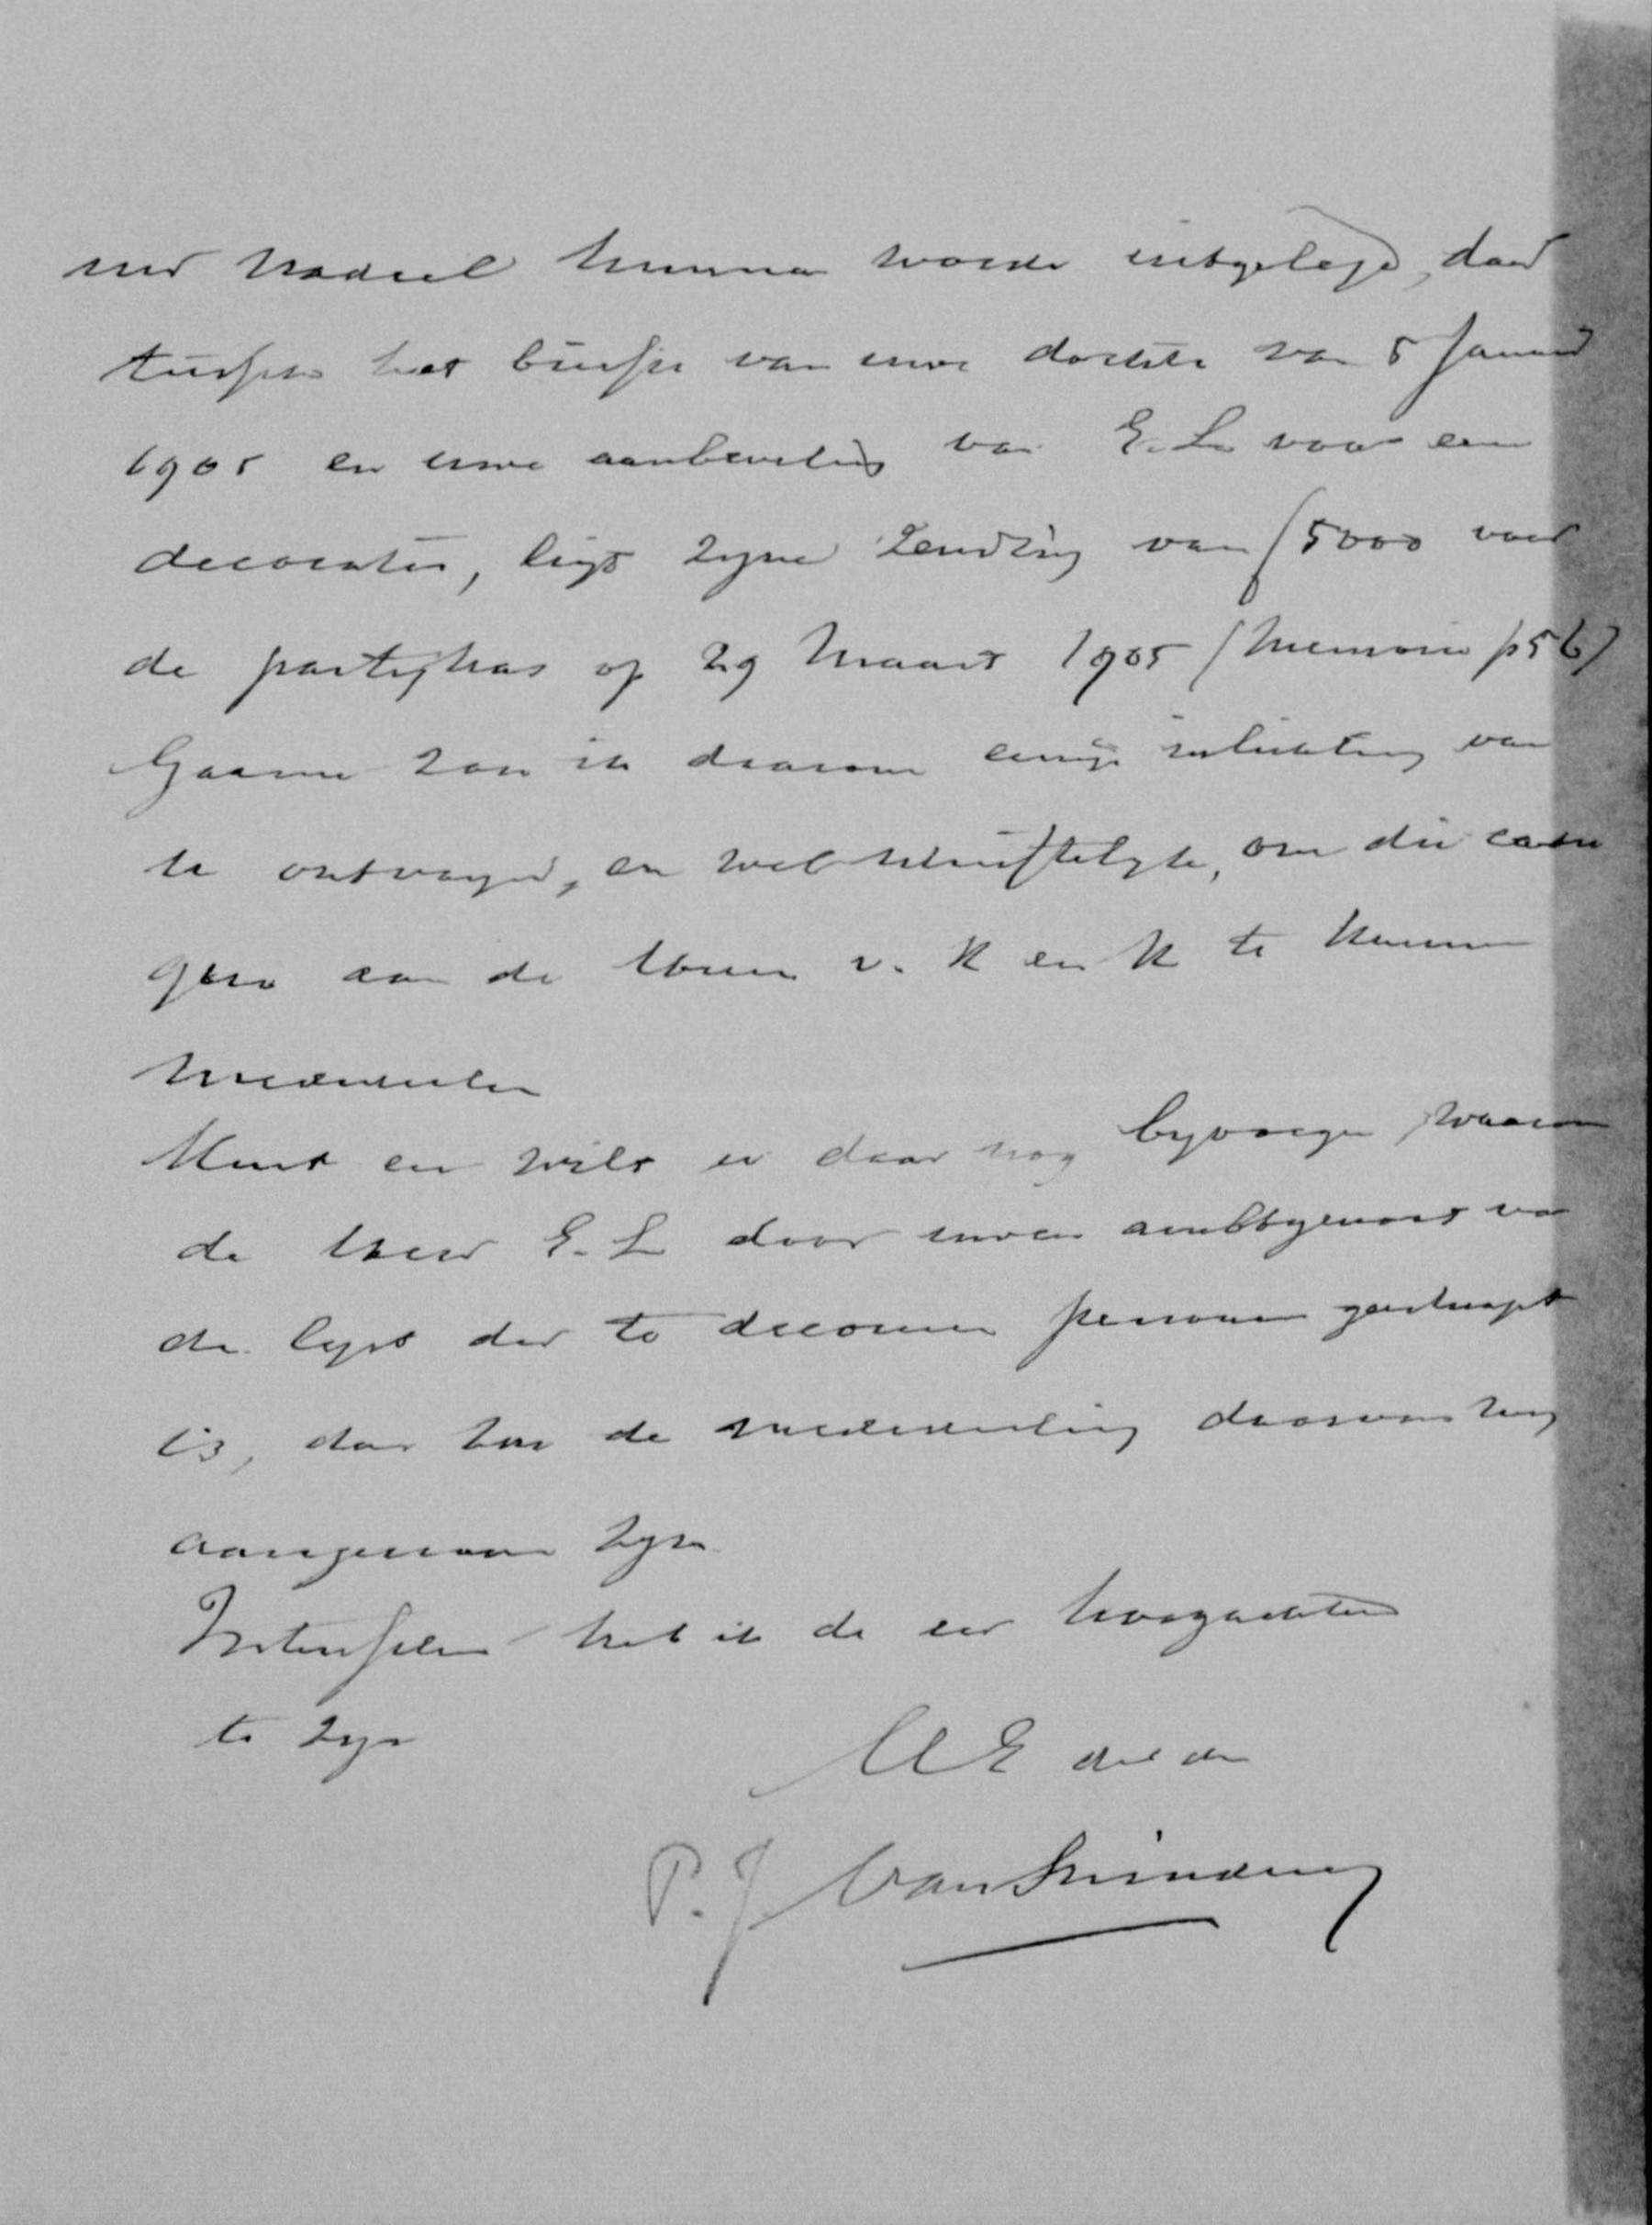 uw nadeel kunnen worden uitgelegd, daar
tusschen het briefje van uwe dochter van 5 Januari
1905 en uwe aanbeveling van E. L. voor een
decoratie, ligt zyne zending van f 5000 voor
de partijkas op 29 Maart 1905 (Memorie p 56)
Gaarne zou ik daarom eenige inlichting van
te ontvangen, en wel schriftelyke, om die
aan de Heeren v. K en K te kunnen
mededeelen
Kunt en wilt u daar nog byvoegen, waarom
de Heer E. L door uwen ambtgenoot van
de lyst der te decoreren personen geschrapt
is, dan zou de mededeeling daarvan my
aangenaam zyn
Intusschen heb ik de eer hoogachtend
te zyn
UE
P. J.